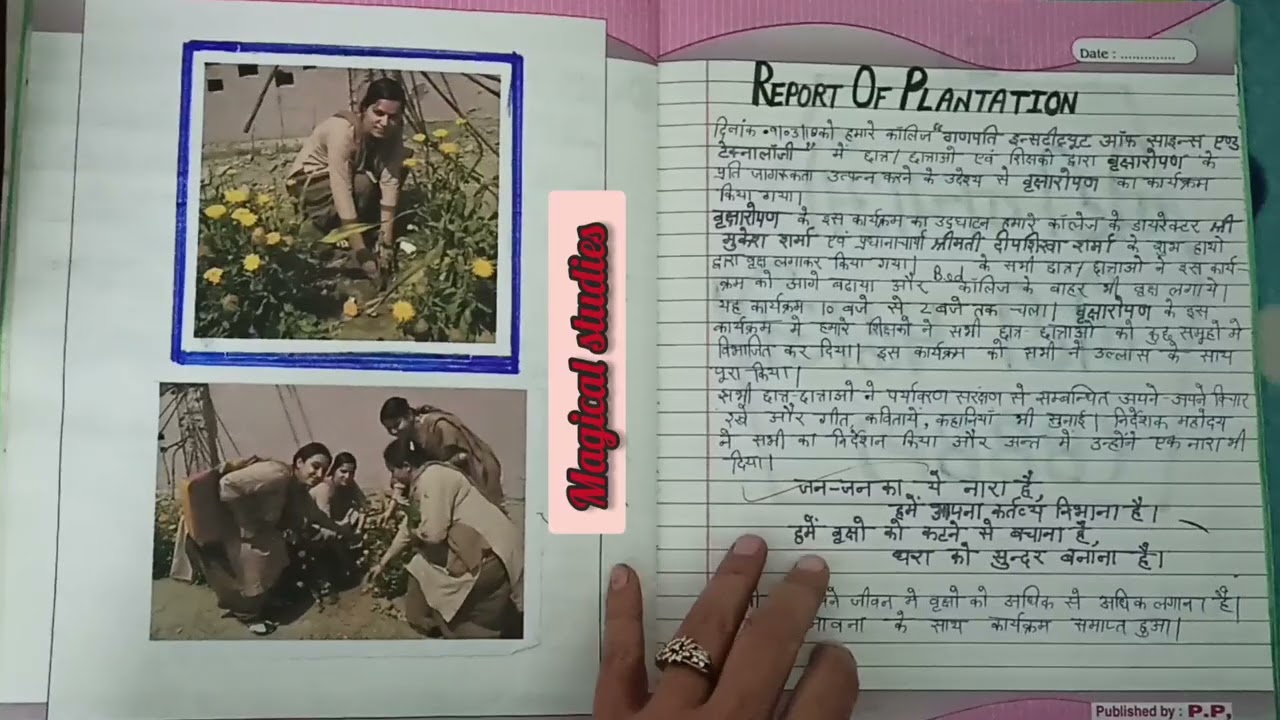 Date : ..............
REPORT OF PLANTATION
दिनांक को हमारे कॉलिज "गणपति इन्सटीट्यूट ऑफ साइन्स एण्ड
टेक्नालॉजी" में छात्र/ छात्राओ एवं शिक्षको द्वारा वृक्षारोपण के
प्रति जागरूकता उत्पन्न करने के उद्देश्य से वृक्षारोपण का कार्यक्रम
किया गया।
वृक्षारोपण के इस कार्यक्रम का उद्घाटन हमारे कॉलेज के डायरेक्टर श्री
मुकेश शर्मा एवं प्रधानाचार्या श्रीमती दीपशिखा शर्मा के शुभ हाथो
द्वारा वृक्ष लगाकर किया गया। B.ed के सभी छात्र/ छात्राओ ने इस कार्य-
क्रम को आगे बढाया और कॉलिज के बाहर भी वृक्ष लगाये।
यह कार्यक्रम 10 बजे से 2 बजे तक चला। वृक्षारोपण के इस
कार्यक्रम मे हमारे शिक्षको ने सभी छात्र छात्राओ को कुछ समूहो मे
विभाजित कर दिया। इस कार्यक्रम को सभी ने उल्लास के साथ
पूरा किया।
सभी छात्र-छात्राओ ने पर्यावरण संरक्षण से सम्बन्धित अपने-अपने विचार
रखे और गीत, कवितायें, कहानियाँ भी सुनाई। निर्देशक महोदय
ने सभी का निर्देशन किया और अन्त में उन्होंने एक नारा भी
दिया।
जन-जन का ये नारा है,
हमें अपना कर्तव्य निभाना है।
हमें वृक्षो को कटने से बचाना है,
धरा को सुन्दर बनाना है।
जीवन मे वृक्षो को अधिक से अधिक लगाना है।
के साथ कार्यक्रम समाप्त हुआ।
Magical studies
Published by : P.P.